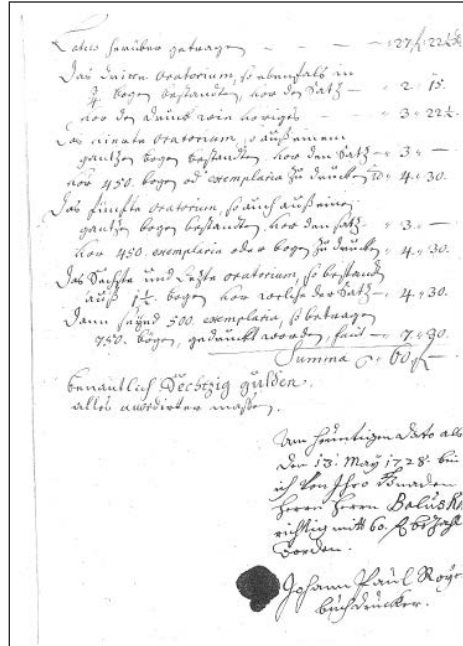 Latus herüber getragen — — — 27 f. 22½
Das dritte Oratorium, so ebenfals in
¾ bogen bestandten, vor den Satz — 2. 15.
vor den Druck wie voriges — 3. 22½.
Das vierte Oratorium, so auß einem
gantzen bogen bestandten, vor den Satz — 3. —
vor 450. bogen od. exemplaria zu drucken 4. 30.
Das fünfte Oratorium, so auch auß einem
gantzen bogen bestandten, vor den satz — 3. —
vor 450. exemplaria oder bogen zu drucken 4. 30.
Das Sechste und Letzte Oratorium, so bestand
auß 1½. bogen vor welche der Satz — 4. 30.
Dann seynd 500. exemplaria, so betragen
750. bögen, gedruckt worden, fait — 7. 30.
Summa 60 f
benantlich Sechtzig gulden.
alles accordirter maßen.
Am heuntigen dato als
den 13. May 1728. bin
ich von Ihro Gnaden
Herrn Herrn
richtig mit 60. f bezahl
worden.
Johann Paul
buchdrucker.